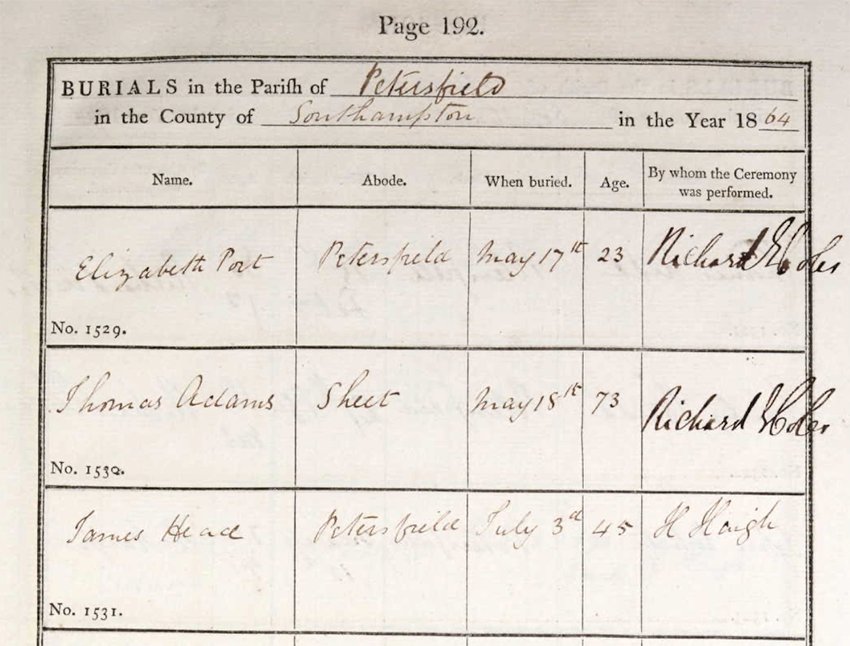 Page 192.
BURIALS in the Parish of Petersfield
in the County of Southampton in the Year 1864
Name. Abode. When buried. Age. By whom the Ceremony
was performed.
Elizabeth Port Petersfield May 17th 23 Richard
No. 1529.
Thomas Adams Sheet May 18th 73 Richard
No. 1530.
James Head Petersfield July 3d 45 H Haigh
No. 1531.